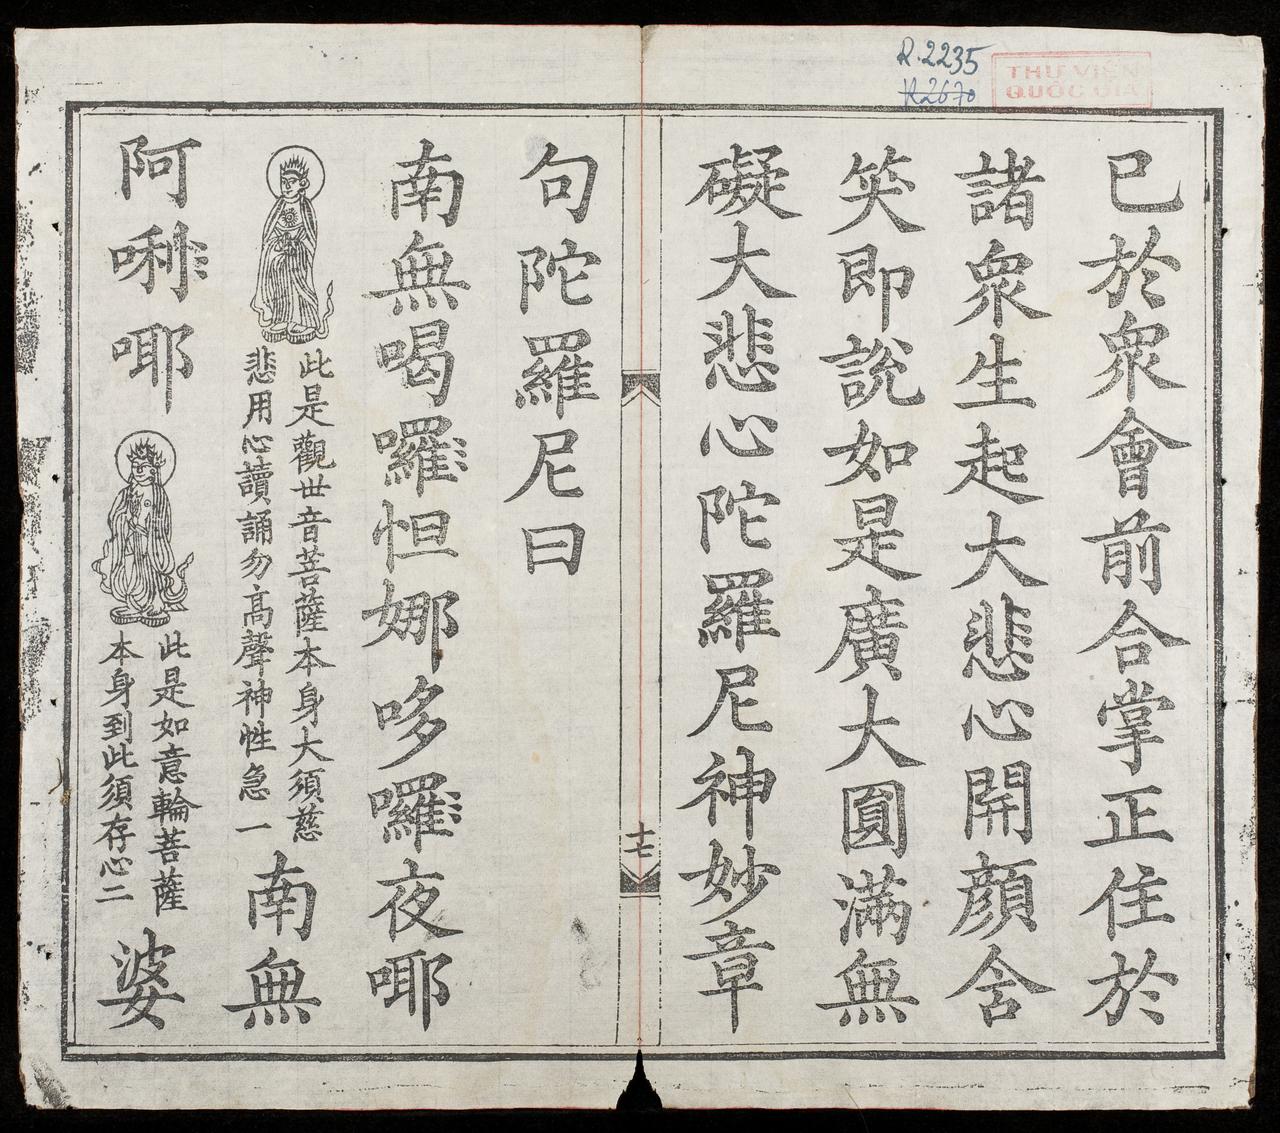 R.2235
R2670
THƯ VIỆN
QUỐC GIA
已於衆會前合掌正住於
諸衆生起大悲心開顔含
笑即說如是廣大圓滿無
礙大悲心陀羅尼神妙章
十七
句陀羅尼曰
南無喝囉怛娜哆囉夜耶
此是觀世音菩薩本身大須慈
悲用心讀誦勿高聲神性急一
南無
阿唎耶
此是如意輪菩薩
本身到此須存心二
婆